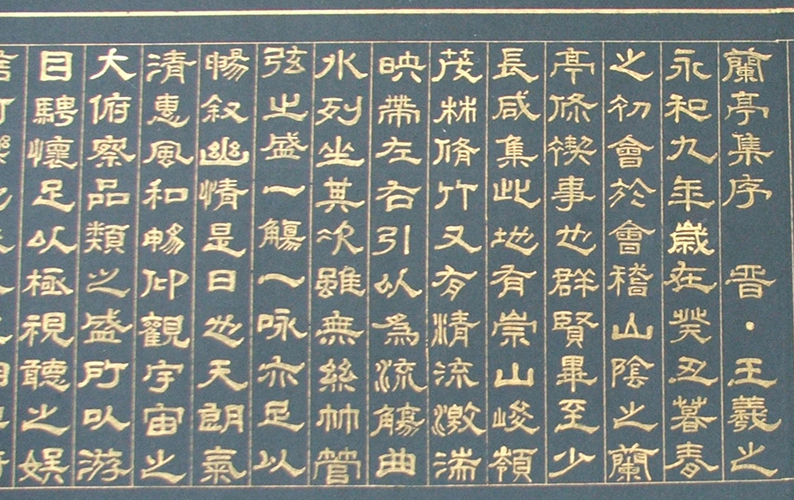 蘭亭集序 晋·王羲之
永和九年歲在癸丑暮春
之初會於會稽山陰之蘭
亭修禊事也群賢畢至少
長咸集此地有崇山峻領
茂林脩竹又有清流激湍
映帶左右引以為流觴曲
水列坐其次雖無絲竹管
弦之盛一觴一咏亦足以
暢叙幽情是日也天朗氣
清惠風和暢仰觀宇宙之
大俯察品類之盛所以游
目騁懷足以極視聽之娛